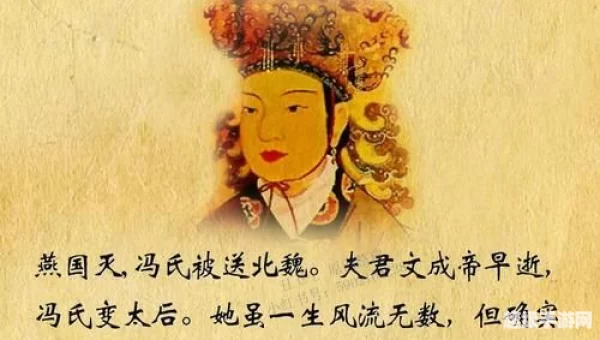 燕国灭,冯氏被送北魏。夫君文成帝早逝,
冯氏变太后。她虽一生风流无数,但确实